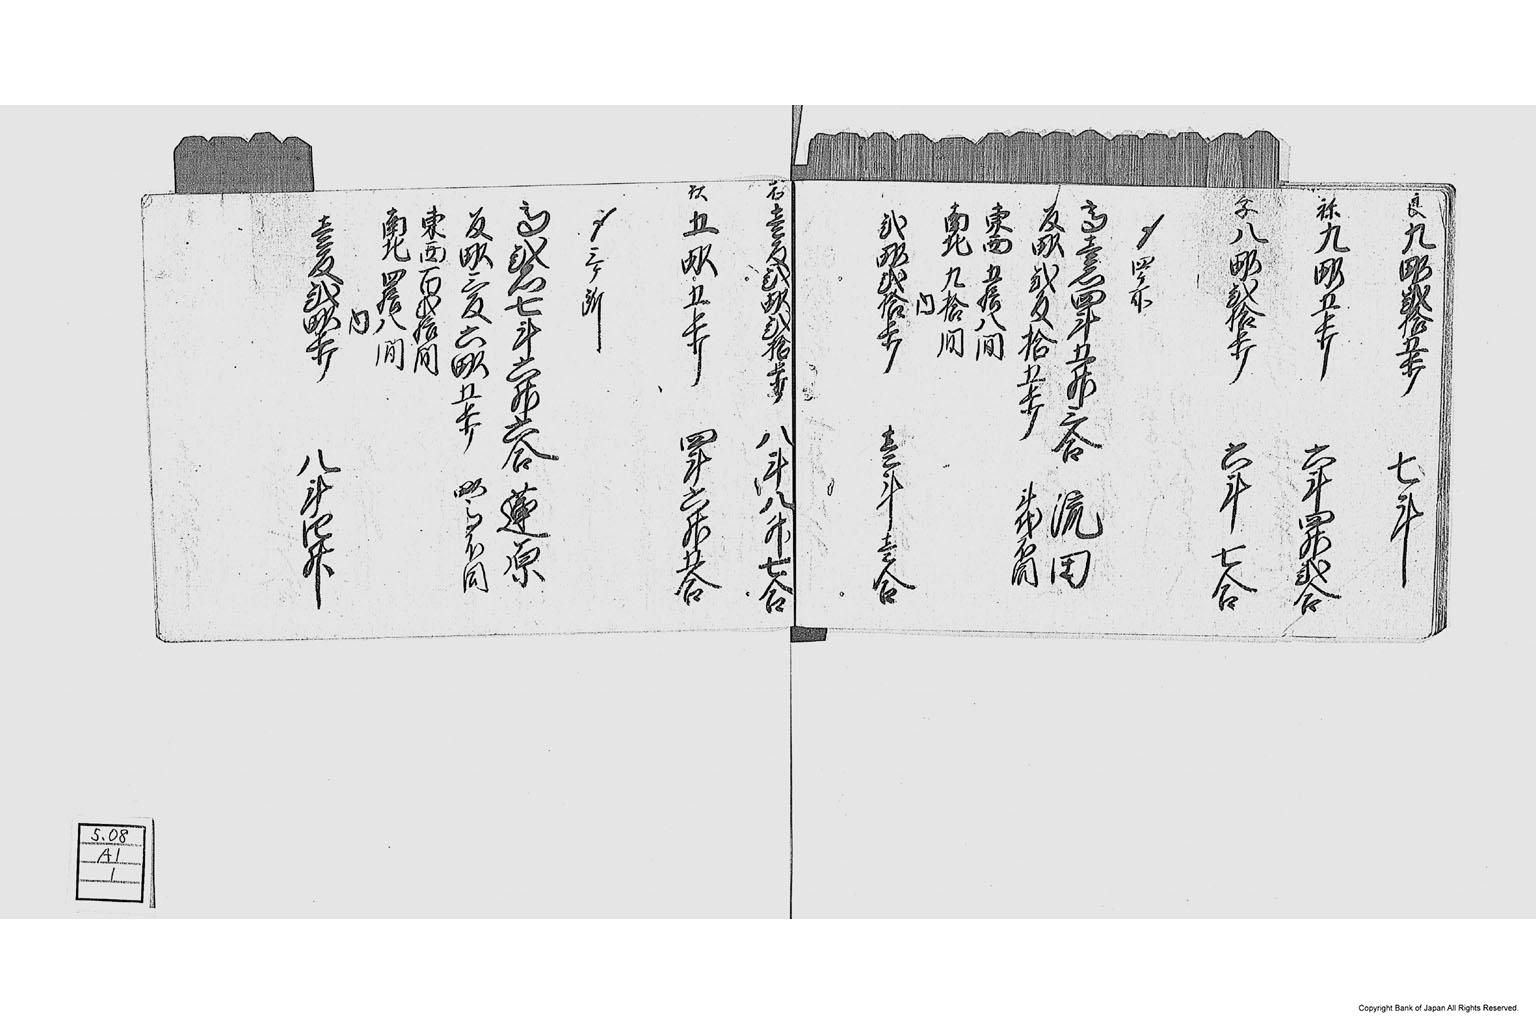 九畝弐拾五歩 七斗
九畝五歩 六斗四升弐合
八畝弐拾歩 六斗七合
〆四ケ所
高壱石四斗五升六合 流田
反畝弐反拾五歩
東西 五拾八間
南北 九拾間
内
弐畝弐拾歩 壱斗壱合
壱反弐畝弐拾歩 八斗八升七合
五畝五歩 四斗六升五合
〆三ケ所
高弐石七斗六升六合 蓮原
反畝三反六畝五歩
東西百弐拾間
南北 四拾八間
内
壱反弐畝歩 八斗四升
S.08
A1
1
Copyright Bank of Japan All Rights Reserved.